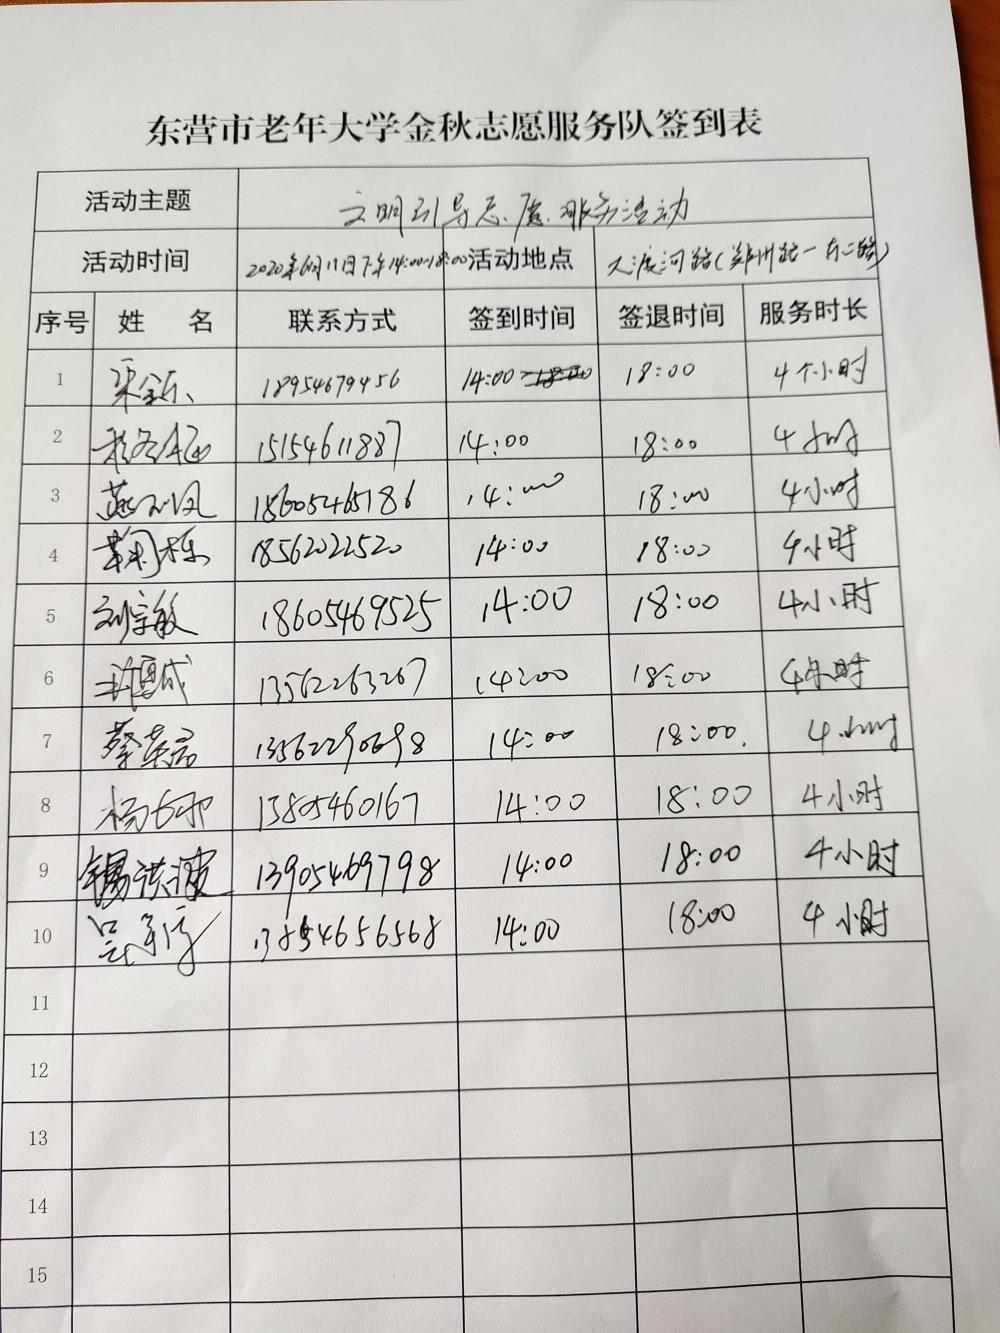 东营市老年大学金秋志愿服务队签到表
活动主题 文明引导志愿服务活动
活动时间 2020年6月11日下午14:00-18:00 活动地点 大渡河路(郑州路一东二路)
序号 姓 名 联系方式 签到时间 签退时间 服务时长
1 18954679456 14:00 18:00 4个小时
2 15154611887 14:00 18:00 4小时
3 18605465186 14:00 18:00 4小时
4 18562022520 14:00 18:00 4小时
5 刘宗敏 18605469525 14:00 18:00 4小时
6 13562263267 14:00 18:00 4小时
7 蔡英君 13562290698 14:00 18:00. 4小时
8 13805460167 14:00 18:00 4小时
9 锡洪波 13905469798 14:00 18:00 4小时
10 13854656568 14:00 18:00 4小时
11
12
13
14
15